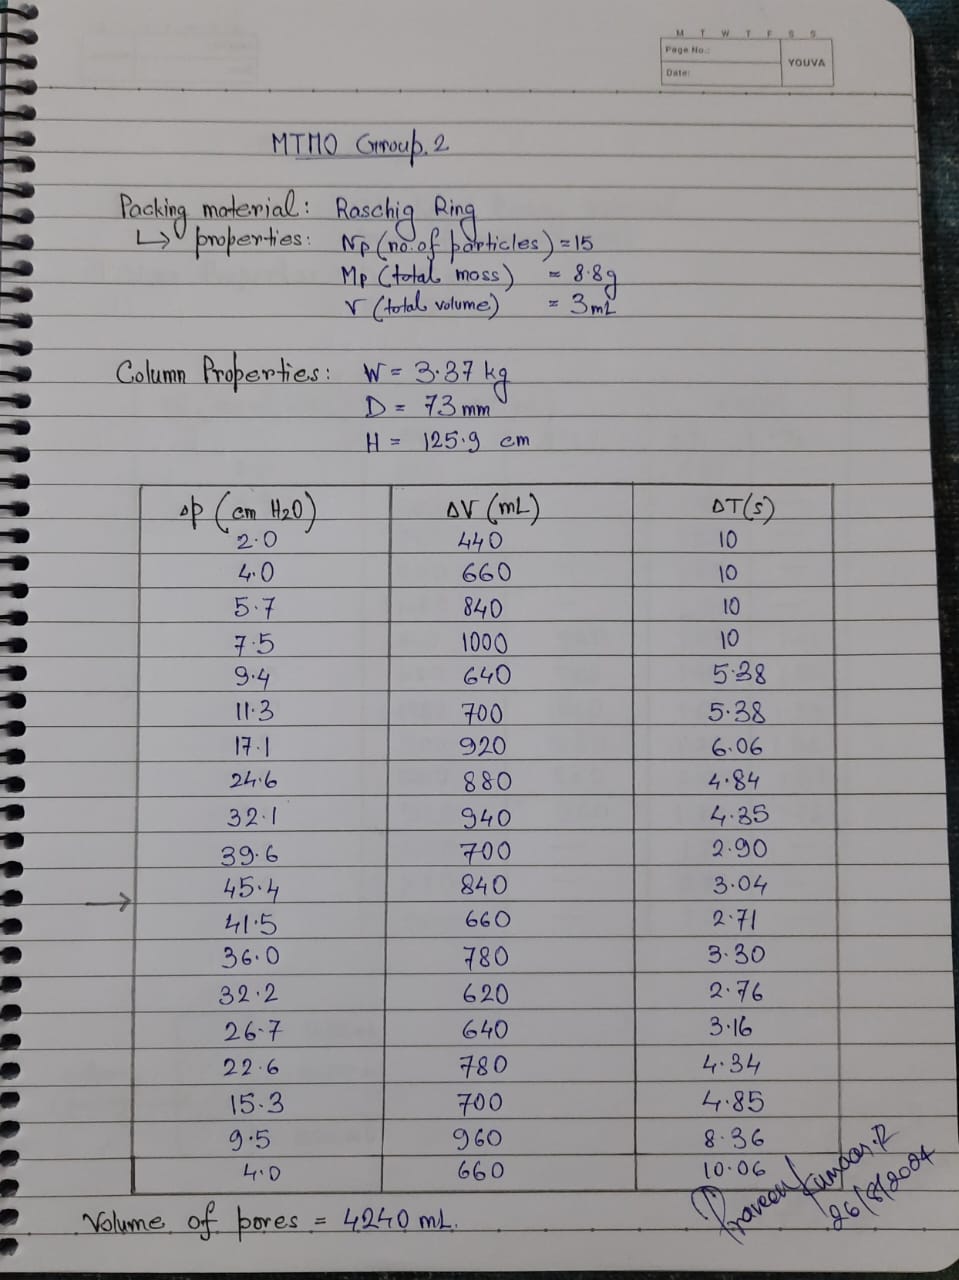 M T W T F S S
Page No.:
YOUVA
Date:
MTMO Group. 2
Packing material: Raschig Ring
↳ properties: Np (no. of particles) = 15
Mp (total mass) = 8.8g
V (total volume) = 3mL
Column Properties: W = 3.37 kg
D = 73 mm
H = 125.9 cm
Δp (cm H2O) ΔV (mL) ΔT(s)
2.0 440 10
4.0 660 10
5.7 840 10
7.5 1000 10
9.4 640 5.38
11.3 700 5.38
17.1 920 6.06
24.6 880 4.84
32.1 940 4.35
39.6 700 2.90
→ 45.4 840 3.04
41.5 660 2.71
36.0 780 3.30
32.2 620 2.76
26.7 640 3.16
22.6 780 4.34
15.3 700 4.85
9.5 960 8.36
4.0 660 10.06
Praveen Kumaar.R
26/8/2024
Volume of pores = 4240 mL.